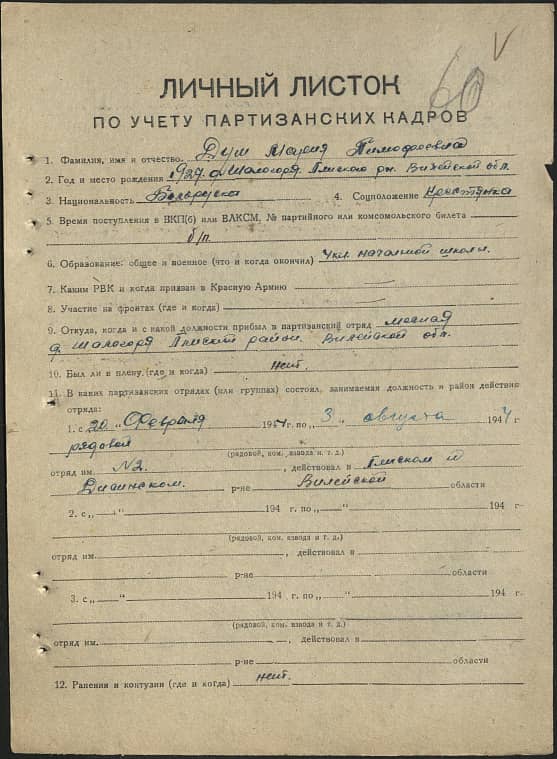 60 V
ЛИЧНЫЙ ЛИСТОК
ПО УЧЕТУ ПАРТИЗАНСКИХ КАДРОВ
1. Фамилия, имя и отчество Мария Тимофеевна
2. Год и место рождения д. Шалогоря Плиского рн. Вилейской обл.
3. Национальность Белоруска 4. Соцположение Крестьянка
5. Время поступления в ВКП(б) или ВЛКСМ, № партийного или комсомольского билета
б/п.
6. Образование: общее и военное (что и когда окончил) 4 кл. начальной школы.
7. Каким РВК и когда призван в Красную Армию
8. Участие на фронтах (где и когда)
9. Откуда, когда и с какой должности прибыл в партизанский отряд местная
д. Шалогоря Плиский район. Вилейской обл.
10. Был ли в плену (где и когда) нет.
11. В каких партизанских отрядах (или группах) состоял, занимаемая должность и район действию
отряда:
1. с 20 „Февраля 1944 г. по „ 3 „ августа 1944 г.
рядовой
(рядовой, ком. взвода и т. д.)
отряд им. №2. , действовал в Плиском и
Дисинском. р-не Вилейской
2. с „ — “ 194 г. по „ — “ 194 г.
(рядовой, ком. взвода и т. д.)
отряд им. , действовал в
р-не области
3. с „ — “ 194 г. по „ — “ 194 г.
(рядовой, ком. взвода и т. д.)
отряд им. , действовал в
р-не области
12. Ранения и контузии (где и когда) нет.